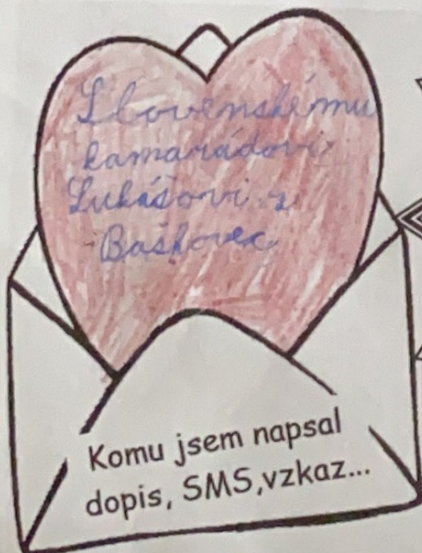 Slovenskému
kamarádovi
Lukášovi z
Baškovec
Komu jsem napsal
dopis, SMS,vzkaz...